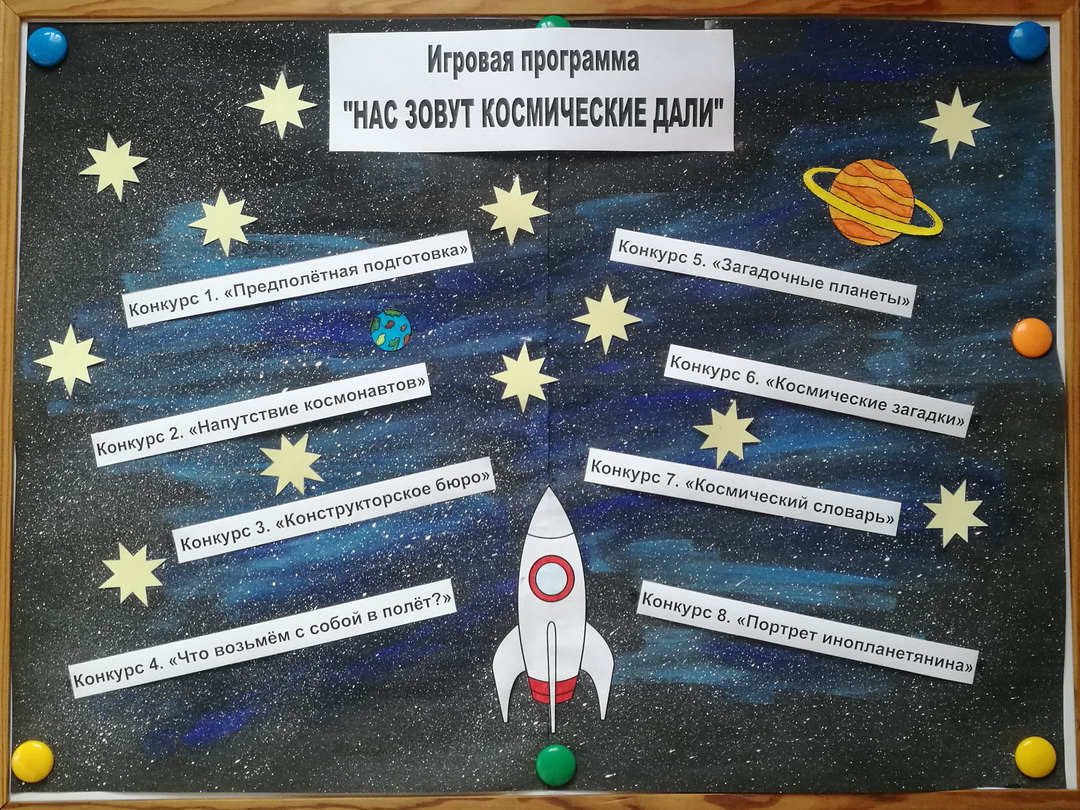 Игровая программа
"НАС ЗОВУТ КОСМИЧЕСКИЕ ДАЛИ"
Конкурс 1. «Предполётная подготовка»
Конкурс 2. «Напутствие космонавтов»
Конкурс 3. «Конструкторское бюро»
Конкурс 4. «Что возьмём с собой в полёт?»
Конкурс 5. «Загадочные планеты»
Конкурс 6. «Космические загадки»
Конкурс 7. «Космический словарь»
Конкурс 8. «Портрет инопланетянина»